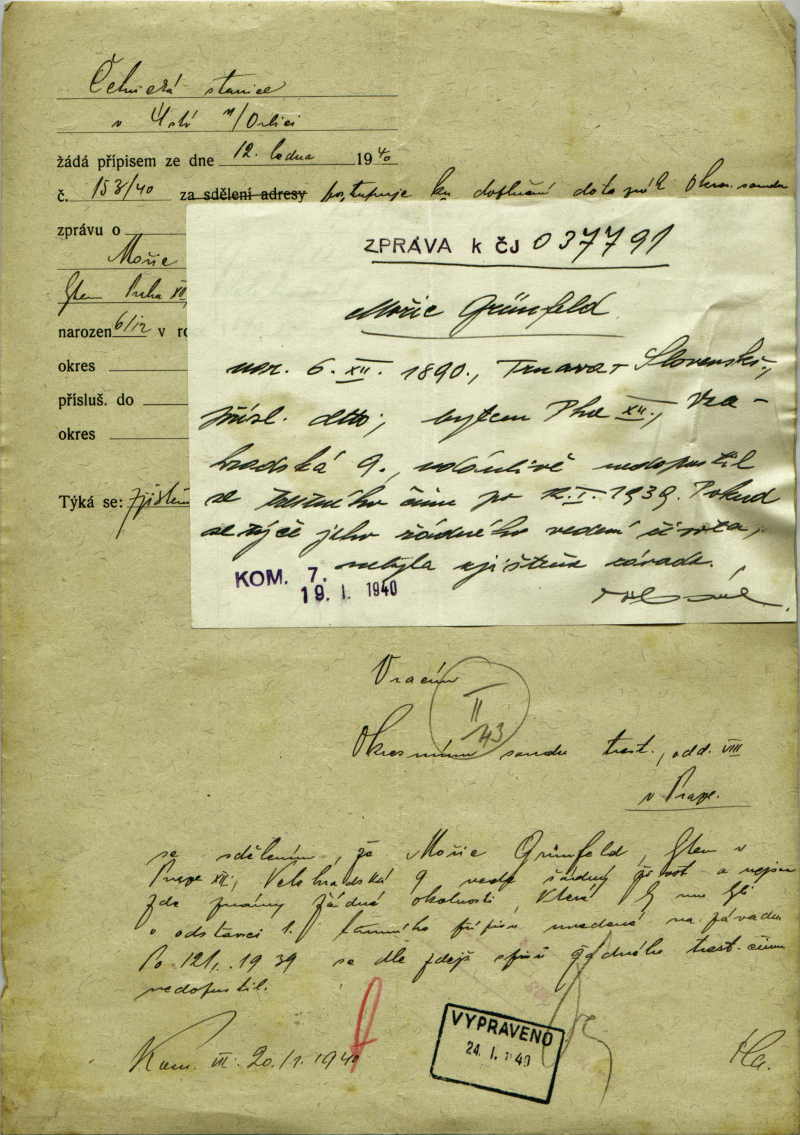 Četnická stanice
v Ústí n/Orlicí
žádá přípisem ze dne 12. ledna 1940
č. 153/40 za sdělení adresy postupuje ku doplnění dotazník okres. soudu
zprávu o
Mořic
bytem Praha XII,
narozen 6/12 v ro
okres
přísluš. do
okres
Týká se: zjištěn
ZPRÁVA k ČJ 037791
Mořic Grünfeld
nar. 6. XII. 1890., Trnava - Slovensko,
přísl. dtto, bytem Pha XII.,
hradská 9., nedopustil
se trestného činu po 12. I. 1939. Pokud
se týče jeho řádného vedení života,
nebyla zjištěna závada.
KOM. 7.
19. I. 1940
Vracím
II
43
Okresnímu soudu trest., odd. VIII
v Praze.
se sdělením, že Mořic Grünfeld, bytem v
Praze XII., Velehradská 9 vede řádný život a nejsou
zde známy žádné okolnosti, které by mu byly
v odstavci 1. tamního přípisu uvedené na závadu
Po 12/1. 1939 se dle zdejš. spisů žádného trest. činu
nedopustil.
Kom. VII. 20./1. 1940
VYPRAVENO
24. I. 1940
Ha.